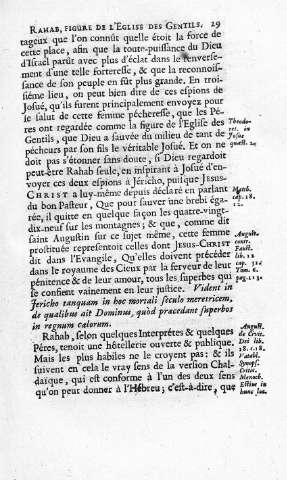 RAHAB, FIGURE DE L'EGLISE DES GENTILS. 29
tageux que l'on connût quelle étoit la force de
cette place, afin que la toute-puissance du Dieu
d'Israel parût avec plus d'éclat dans le renverse-
ment d'une telle forteresse, & que la reconnois-
sance de son peuple en fût plus grande. En troi-
siéme lieu, on peut bien dire de ces espions de
Josué, qu'ils furent principalement envoyez pour
le salut de cette femme pécheresse, que les Pé-
res ont regardée comme la figure de l'Eglise des
Gentils, que Dieu a sauvée du milieu de tant de
pécheurs par son fils le véritable Josué. Et on ne
doit pas s'étonner sans doute, si Dieu regardoit
peut-être Rahab seule, en inspirant à Josué d'en-
voyer ces deux espions à Jéricho, puisque JESUS-
CHRIST a luy-même depuis déclaré en parlant
du bon Pasteur, Que pour sauver une brebi éga-
rée, il quitte en quelque façon les quatre-vingt-
dix-neuf sur les montagnes; & que, comme dit
saint Augustin sur ce sujet même, cette femme
prostituée représentoit celles dont JESUS-CHRIST
dit dans l'Evangile, Qu'elles doivent précéder
dans le royaume des Cieux par la ferveur de leur
pénitence & de leur amour, tous les superbes qui
se confient vainement en leur justice. Vident in
Jericho tanquam in hoc mortali seculo meretricem,
de qualibus ait Dominus, quòd præcedant superbos
in regnum cælorum.
Rahab, selon quelques Interprétes & quelques
Péres, tenoit une hôtellerie ouverte & publique.
Mais les plus habiles ne le croyent pas; & ils
suivent en cela le vray sens de la version Chal-
daïque, qui est conforme à l'un des deux sens
qu'on peut donner à l'Hébreu; c'est-à-dire, que
Theodo-
ret. in
Josue
quæst. 2.
Matth.
cap. 18.
12.
August.
contr.
Faust.
lib. 12
cap. 31.
Tom. 6.
August.
de Civit.
Dei lib.
18. c. 18.
Vatabl.
Synops.
Critic.
Menoch.
Estius in
hunc loc.